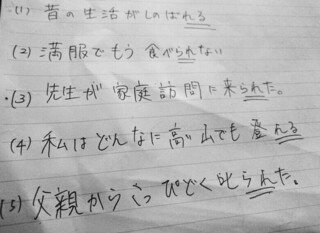 (1) 昔の生活がしのばれる
(2) 満服でもう食べられない
(3) 先生が家庭訪問に来られた。
(4) 私はどんなに高い山でも登れる
(5) 父親からこっぴどく叱られた。